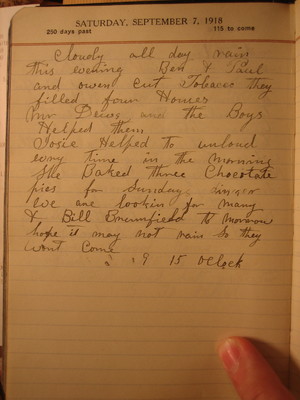 SATURDAY, SEPTEMBER 7, 1918
250 days past 115 to come
Cloudy all day rain
this evening Ben & Paul
and owen Cut Tobacco they
filled four Homes
Mr and the Boys
Helped them
Josie Helped to unload
evry time in the morning
She Baked three Chocolate
pies for Sunday dinner
we are lookin for many
& Bill Brumfield to morrow
hope it may not rain So they
wont Come
9 15 OClock